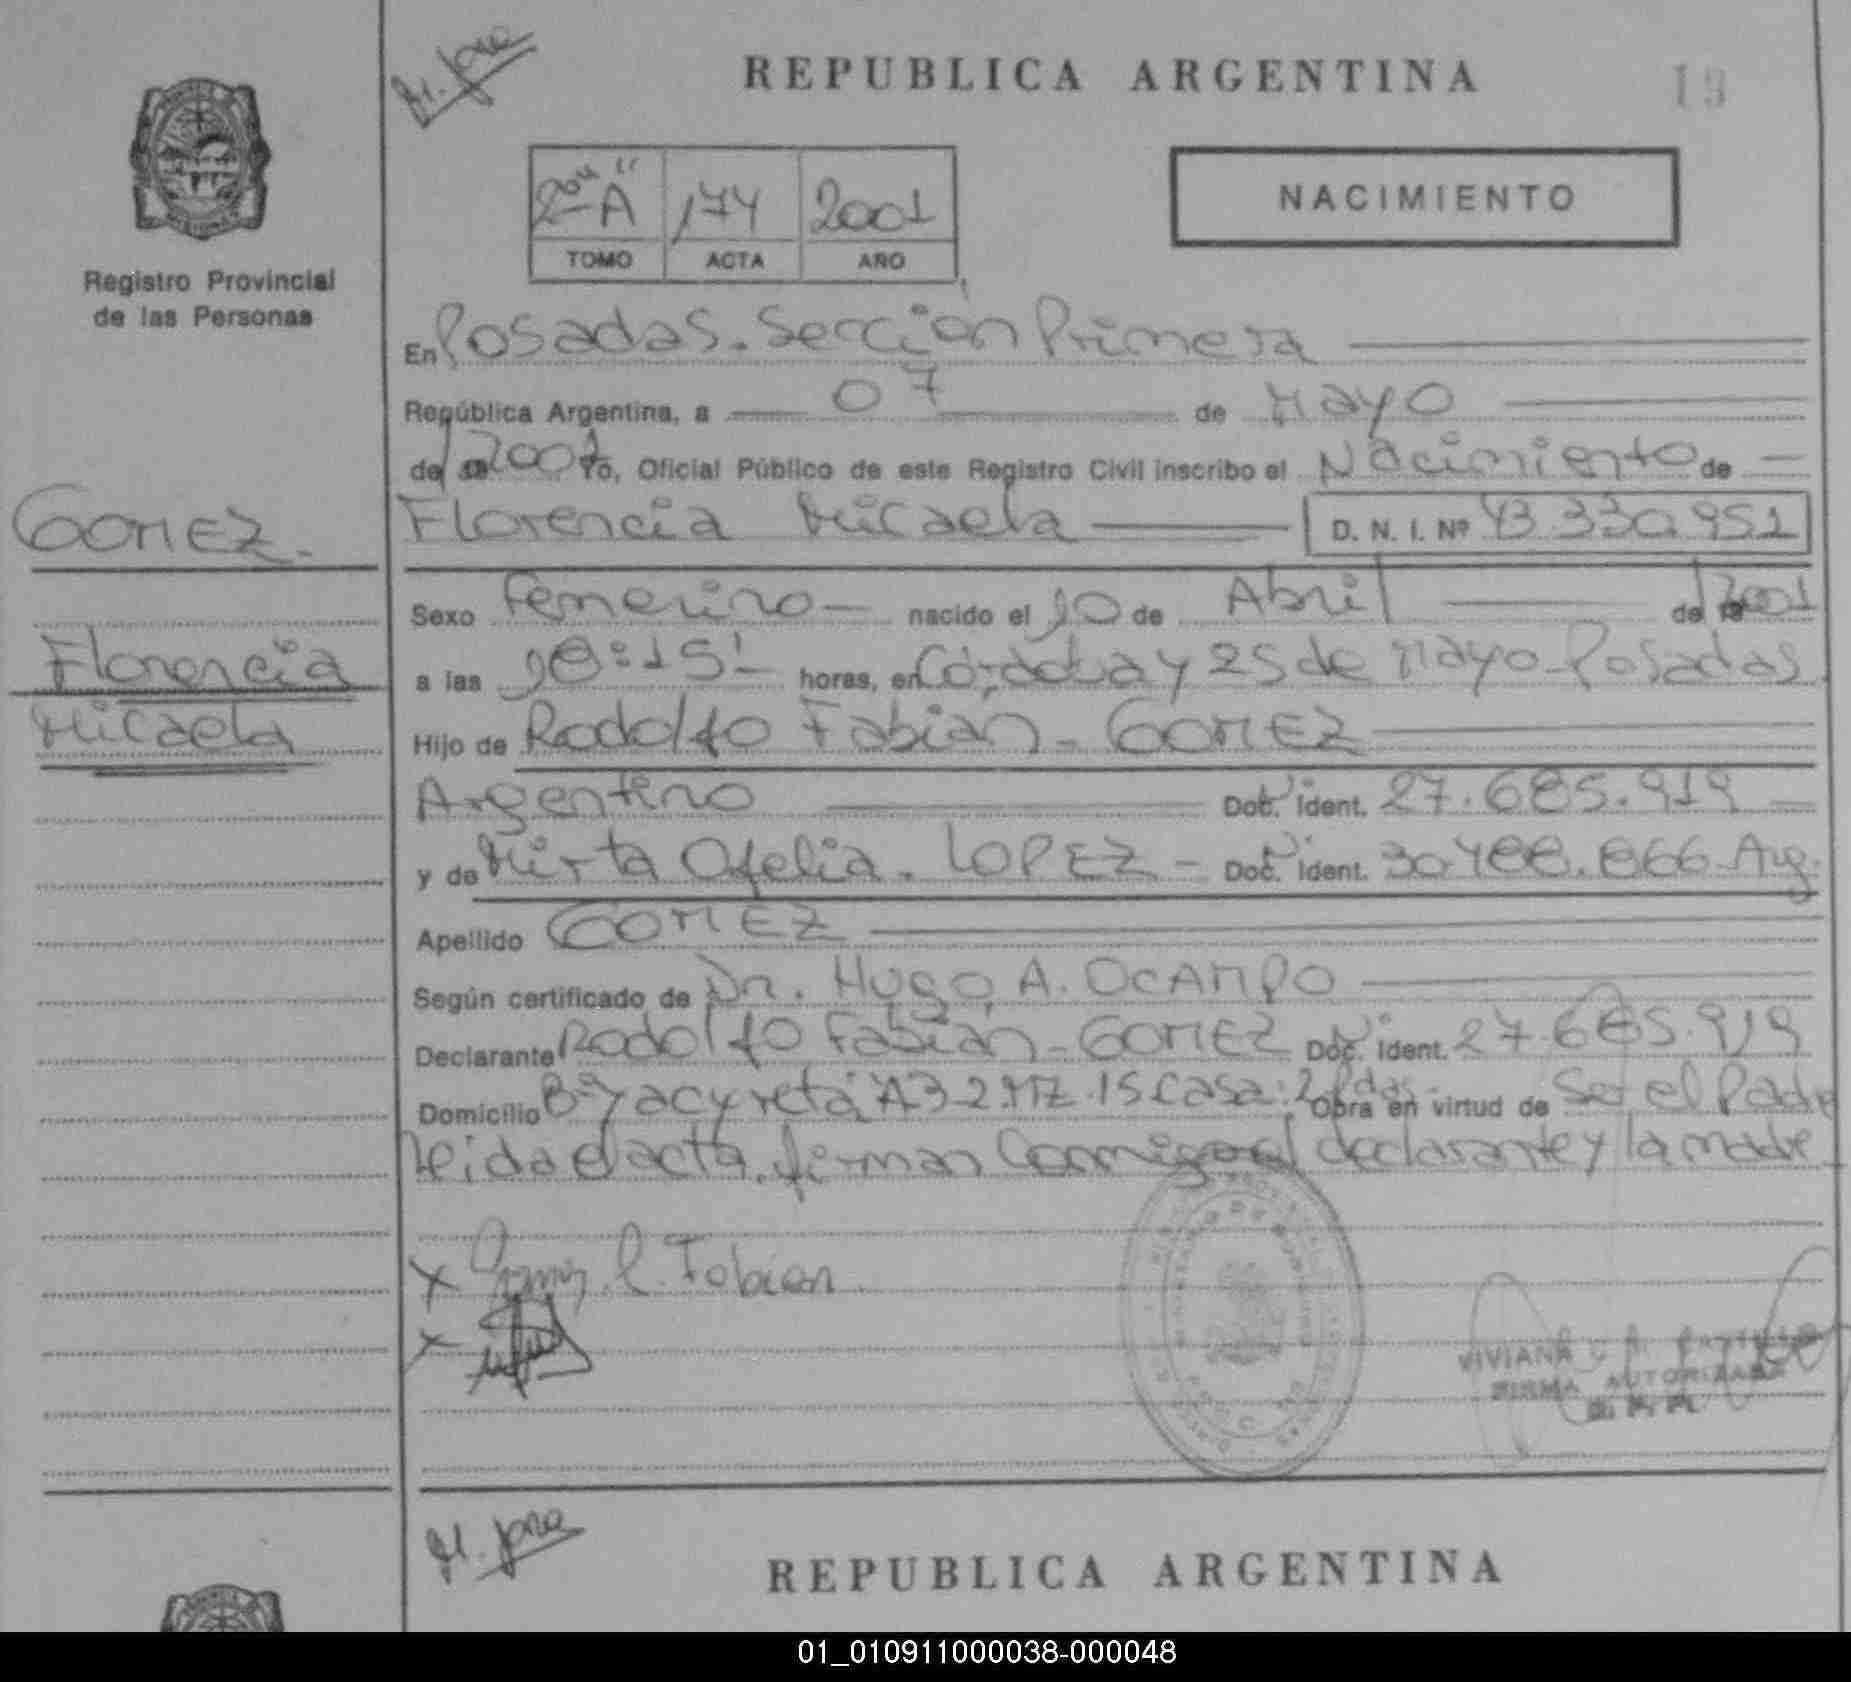 M. Jora
REPUBLICA ARGENTINA
19
2º "A" 174 2001
TOMO ACTA AÑO
NACIMIENTO
Registro Provincial
de las Personas
En Posadas. Sección Primera
República Argentina, a 07 de Mayo
de 2001 Yo, Oficial Público de este Registro Civil inscribo el Nacimiento de
GOMEZ.
Florencia Micaela D. N. I. Nº 43.330.951
Sexo Femenino nacido el 10 de Abril de 2001
Florencia
a las 18:15' horas, en Córdoba y 25 de Mayo-Posadas
Micaela
Hijo de Rodolfo Fabián - GOMEZ
Argentino Doc. Ident. 27.685.919
y de Mirta Ofelia. LOPEZ - Doc. Ident. 30.488.866-Arg.
Apellido GOMEZ
Según certificado de Dr. Hugo A. OCAMPO
Declarante Rodolfo Fabián - GOMEZ Doc. Ident. 27.685.919
Domicilio Bº Yacyretá A3-2 Mz. 15 Casa: 2 Pdas. Obra en virtud de Ser el Padre
Leida el acta, firman Conmigo el declarante y la madre
X Gomez. R. Fabian
X
VIVIANA
FIRMA AUTORIZADA
R. P. P.
REPUBLICA ARGENTINA
01_010911000038-000048